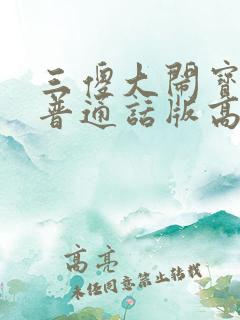 三傻大闹宝
普通话版高
高亮
未经同意禁止转载